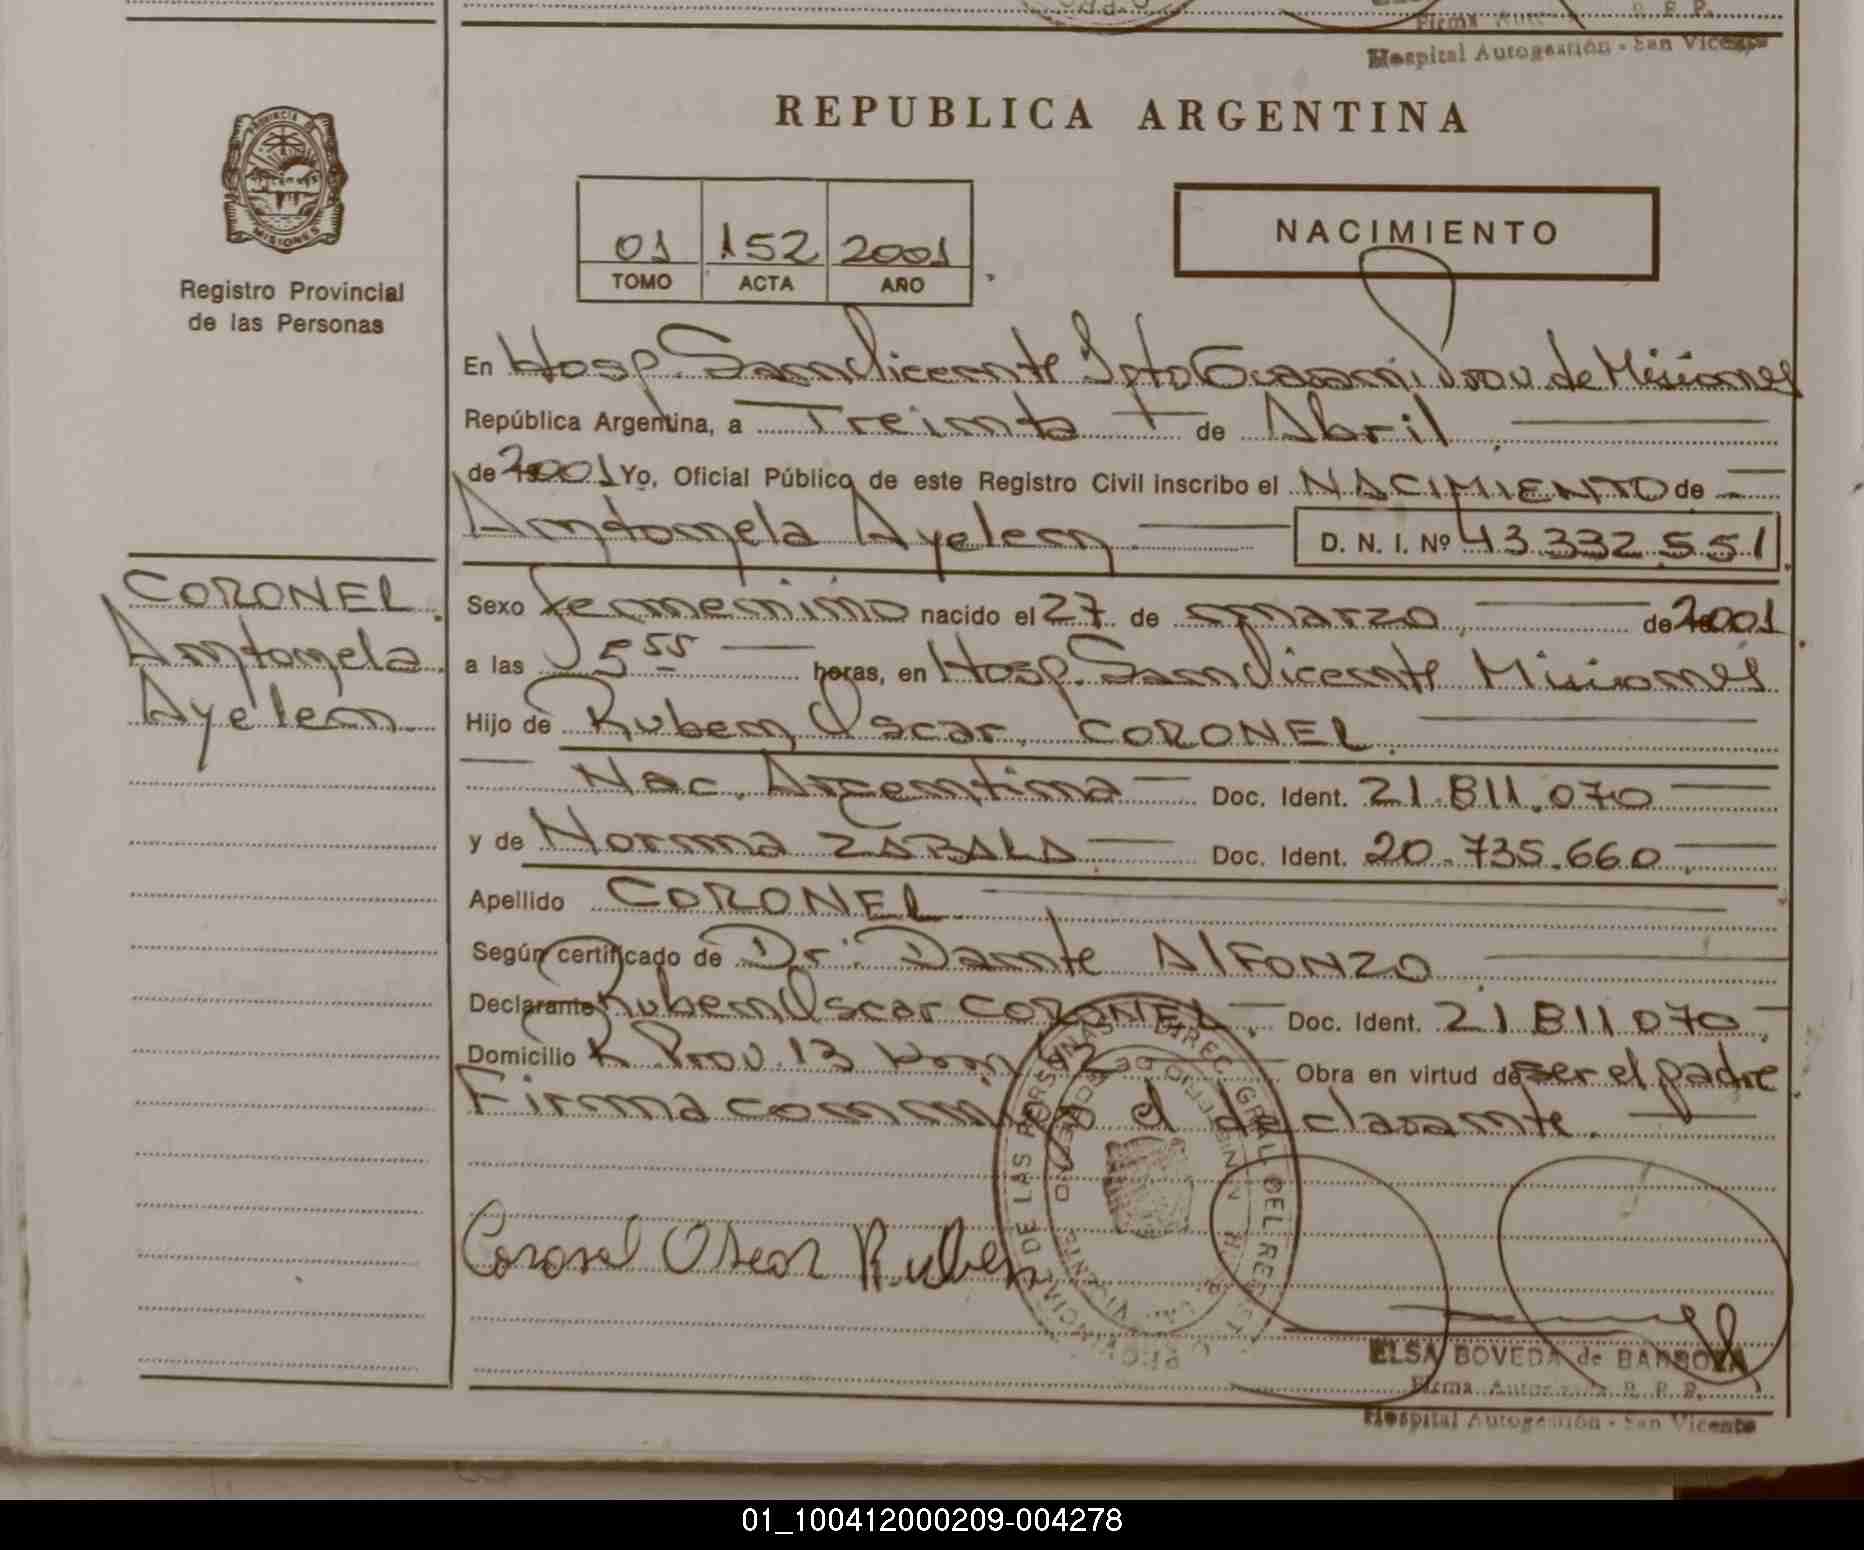 Firma Auto R. P. P.
Hospital Autogestión - San Vicente
REPUBLICA ARGENTINA
PROVINCIA DE
MISIONES
Registro Provincial
de las Personas
01 152 2001
TOMO ACTA AÑO
NACIMIENTO
En Hosp. San Vicente Dpto Guarani Prov de Misiones
República Argentina, a Treinta de Abril
de 2001 Yo, Oficial Público de este Registro Civil inscribo el NACIMIENTO de
Antonela Ayelen D. N. I. Nº 43.332.551
CORONEL
Antonela
Ayelen
Sexo femenino nacido el 27 de marzo de 2001
a las 5 55 horas, en Hosp. San Vicente Misiones
Hijo de Ruben Oscar CORONEL
Nac. Argentina Doc. Ident. 21.811.070
y de Norma ZABALA Doc. Ident. 20.735.660
Apellido CORONEL
Según certificado de Dr. Dante ALFONZO
Declarante Ruben Oscar CORONEL Doc. Ident. 21811070
Domicilio R. Prov. 13 Km 42 Obra en virtud de ser el padre
Firma conmigo el declarante.
DIREC. GRAL. DEL REG. PROVINCIAL DE LAS PERSONAS
Coronel Oscar Ruben
ELSA BOVEDA de BARBOZA
Firma R. P. P.
Hospital Autogestión - San Vicente
01_100412000209-004278